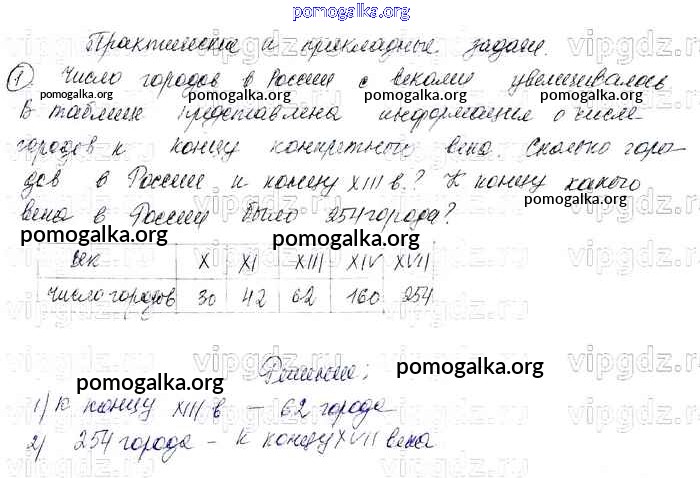 pomogalka.org
Практические и прикладные задачи.
1 Число городов в России с веками увеличивалось
pomogalka.org pomogalka.org pomogalka.org
В таблице представлена информация о числе
городов к концу конкретного века. Сколько горо-
дов в России к концу XIII в.? К концу какого
pomogalka.org
века в России было 254 города?
pomogalka.org pomogalka.org
век X XI XIII XIV XVII
число городов 30 42 62 160 254
Решение:
pomogalka.org pomogalka.org
1) к концу XIII в – 62 города
2) 254 города – к концу XVII века